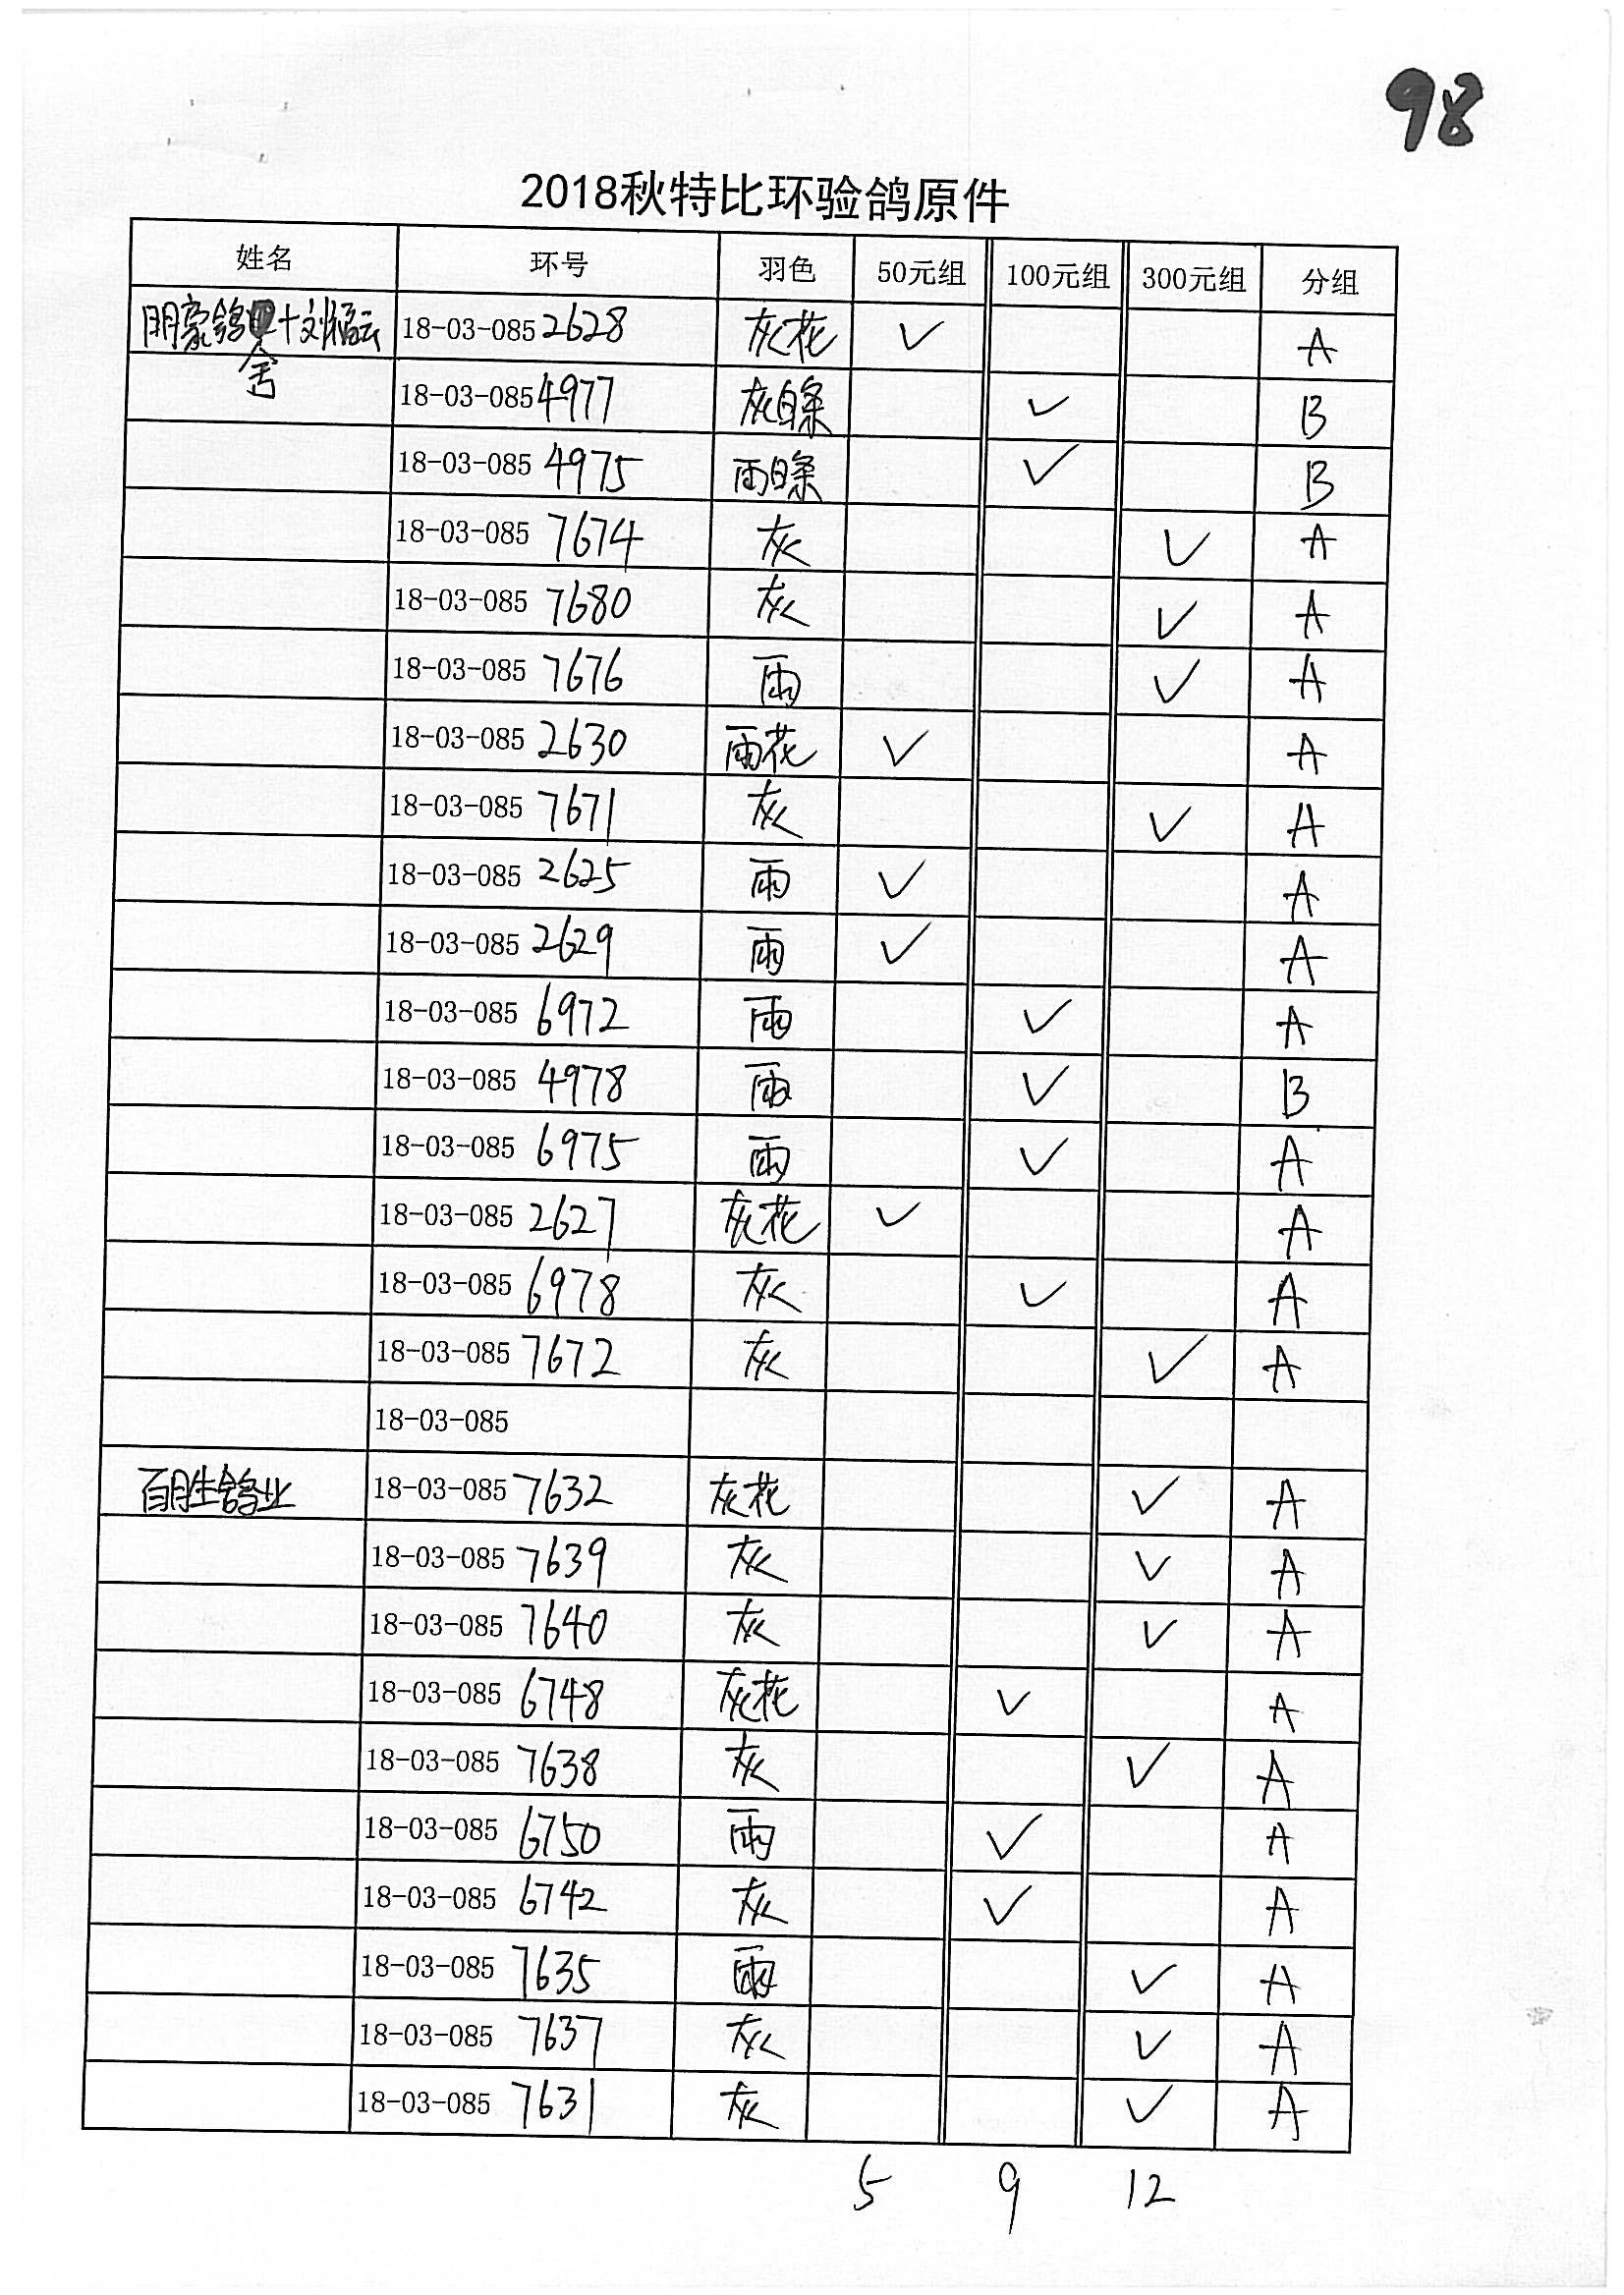 98
2018秋特比环验鸽原件
姓名 环号 羽色 50元组 100元组 300元组 分组
明豪鸽舍+刘福云 18-03-0852628 灰花 ✓ A
18-03-0854977 灰白条 ✓ B
18-03-0854975 雨白条 ✓ B
18-03-0857674 灰 ✓ A
18-03-0857680 灰 ✓ A
18-03-0857676 雨 ✓ A
18-03-0852630 雨花 ✓ A
18-03-0857671 灰 ✓ A
18-03-0852625 雨 ✓ A
18-03-0852629 雨 ✓ A
18-03-0856972 雨 ✓ A
18-03-0854978 雨 ✓ B
18-03-0856975 雨 ✓ A
18-03-0852627 灰花 ✓ A
18-03-0856978 灰 ✓ A
18-03-0857672 灰 ✓ A
18-03-085
百胜鸽业 18-03-0857632 灰花 ✓ A
18-03-0857639 灰 ✓ A
18-03-0857640 灰 ✓ A
18-03-0856748 灰花 ✓ A
18-03-0857638 灰 ✓ A
18-03-0856750 雨 ✓ A
18-03-0856742 灰 ✓ A
18-03-0857635 雨 ✓ A
18-03-0857637 灰 ✓ A
18-03-0857631 灰 ✓ A
5 9 12